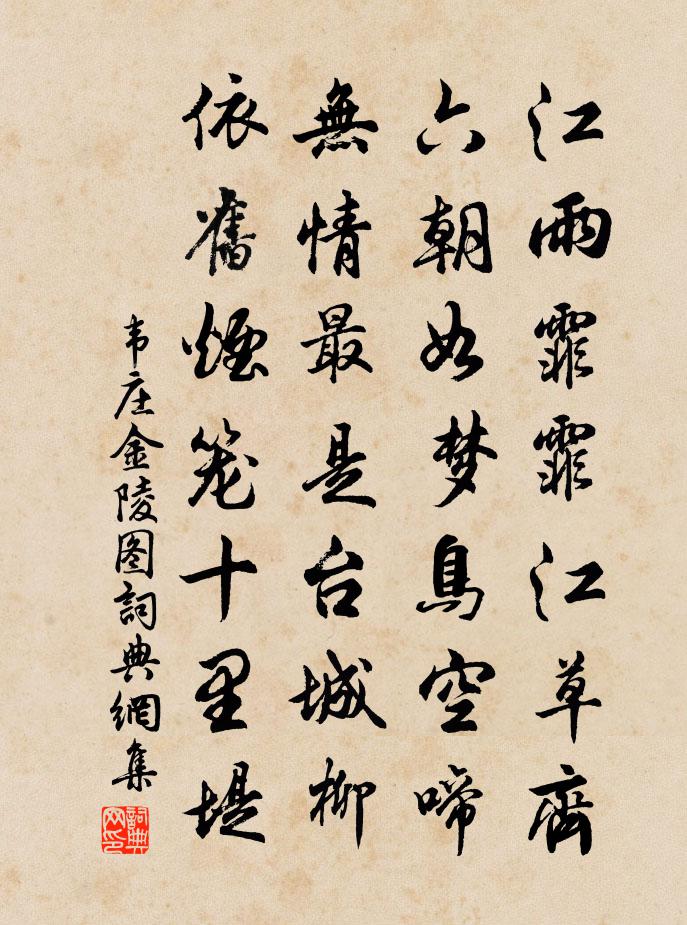 江雨霏霏江草齊
六朝如梦鳥空啼
無情最是台城柳
依舊煙笼十里堤
韦庄金陵图詞典網集
詞典网印